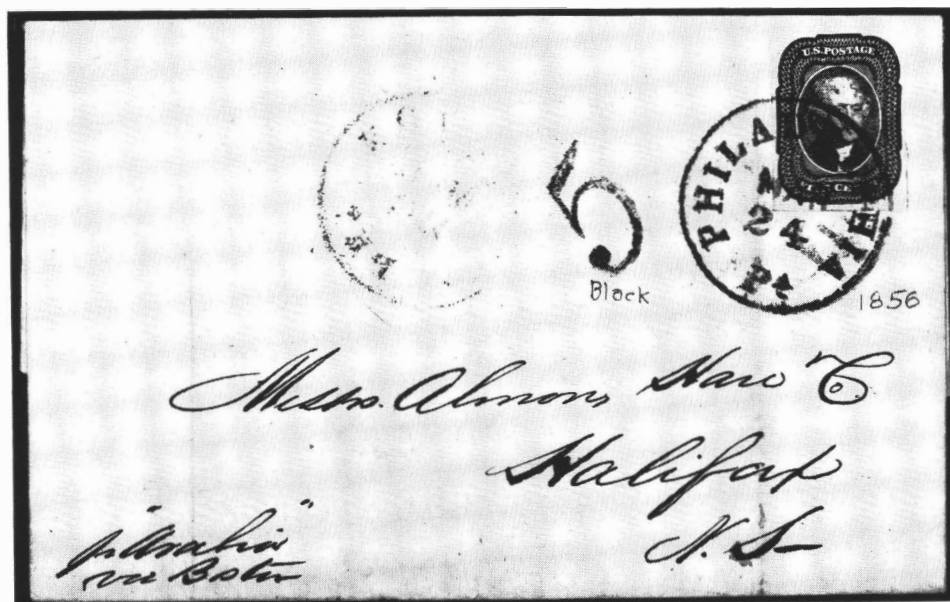 U.S. POSTAGE
PHILA
24
5
Block
1856
Messrs. Almon, Hare & Co
Halifax
N. S.
pr "Arabia"
via Boston